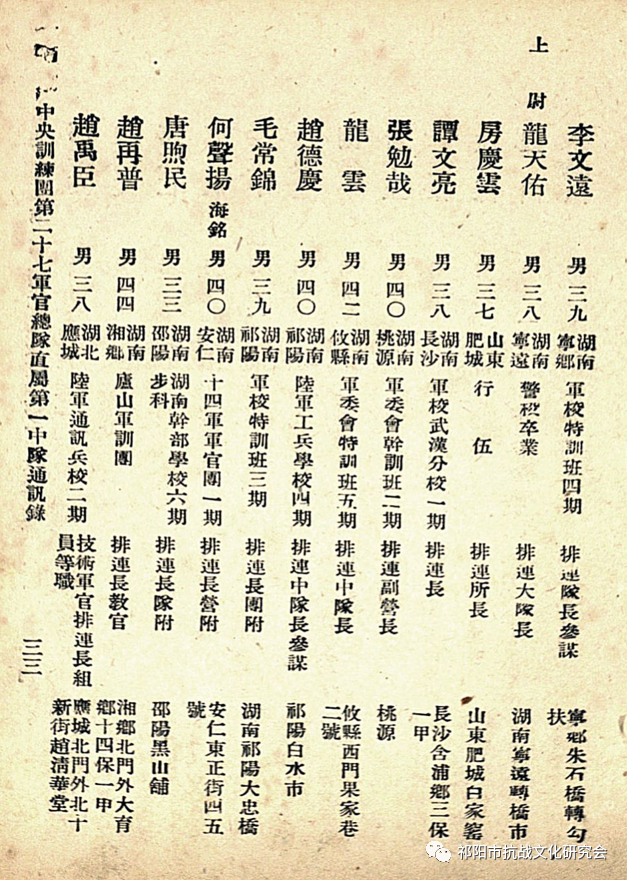 上尉
李文遠 男 三九 湖南寧鄉 軍校特訓班四期 排連隊長參謀 寧鄉朱石橋轉勾扶
龍天佑 男 三八 湖南寧遠 警校卒業 排連大隊長 湖南寧遠轉橋市
房慶雲 男 三七 山東肥城 行伍 排連所長 山東肥城白家窰
譚文亮 男 三八 湖南長沙 軍校武漢分校一期 排連長 長沙含浦鄉三保一甲
張勉哉 男 四〇 湖南桃源 軍委會幹訓班二期 排連副營長 桃源
龍雲 男 四二 湖南攸縣 軍委會特訓班五期 排連中隊長 攸縣西門果家巷二號
趙德慶 男 四〇 湖南祁陽 陸軍工兵學校四期 排連中隊長參謀 祁陽白水市
毛常錦 男 三九 湖南祁陽 軍校特訓班三期 排連長團附 湖南祁陽大忠橋
何聲揚 海銘 男 四〇 湖南安仁 十四軍軍官團一期 排連長營附 安仁東正街四五號
唐煦民 男 三三 湖南邵陽 湖南幹部學校六期步科 排連長隊附 邵陽黑山舖
趙再普 男 四四 湖南湘鄉 廬山軍訓團 排連長教官 湘鄉北門外大育鄉十四保一甲
趙禹臣 男 三八 湖北應城 陸軍通訊兵校二期 技術軍官排連長組員等職 應城北門外北十新街趙清華堂
中央訓練團第二十七軍官總隊直屬第一中隊通訊錄
三三
祁阳市抗战文化研究会